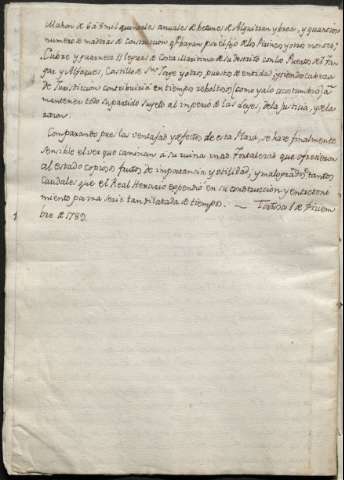 Mahon de 6 á 8 mil quintales anuales de betunes de Alquitran y brea, y quantioso
numero de maderas de Construccion qe. baxan por el Rio de los Pirineos y otros montes;
Cubre y guarnece 11 leguas de Costa Maritima de su distrito con los Puertos del Fan-
gar y Alfaques, Castillo de Sn. Jorge y otros puestos de entidad; y siendo Cabeza
de Jurisdiccion contribuiria en tiempos rebeltosos (como ya lo acostumbró) á
mantener todo su partido sujeto al imperio de las leyes, de la justicia, y de la
razon.
Comparando pues las ventajas y defectos de esta Plaza, se hace finalmente
sensible el ver que caminan a su ruina unas Fortalezas que ofrecieran
al estado copiosos frutos de importancia y utilidad, y malogrados tantos
Caudales que el Real Herario expendió en su construccion y entreteni-
miento por una serie tan dilatada de tiempos. — Tortosa 1 de Diciem-
bre de 1789.